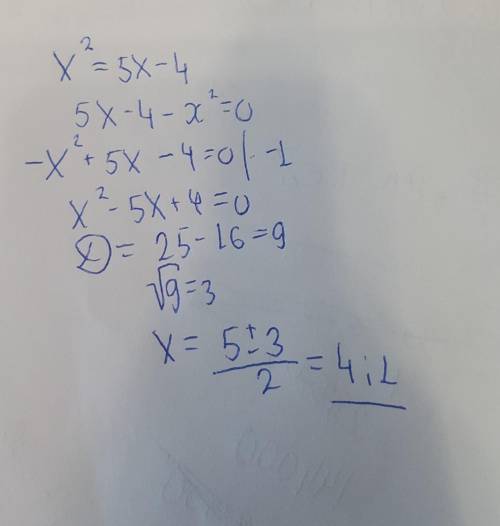 x² = 5x - 4
5x - 4 - x² = 0
-x² + 5x - 4 = 0 | · -1
x² - 5x + 4 = 0
D = 25 - 16 = 9
√9 = 3
x = (5 ± 3)/2 = 4; 1